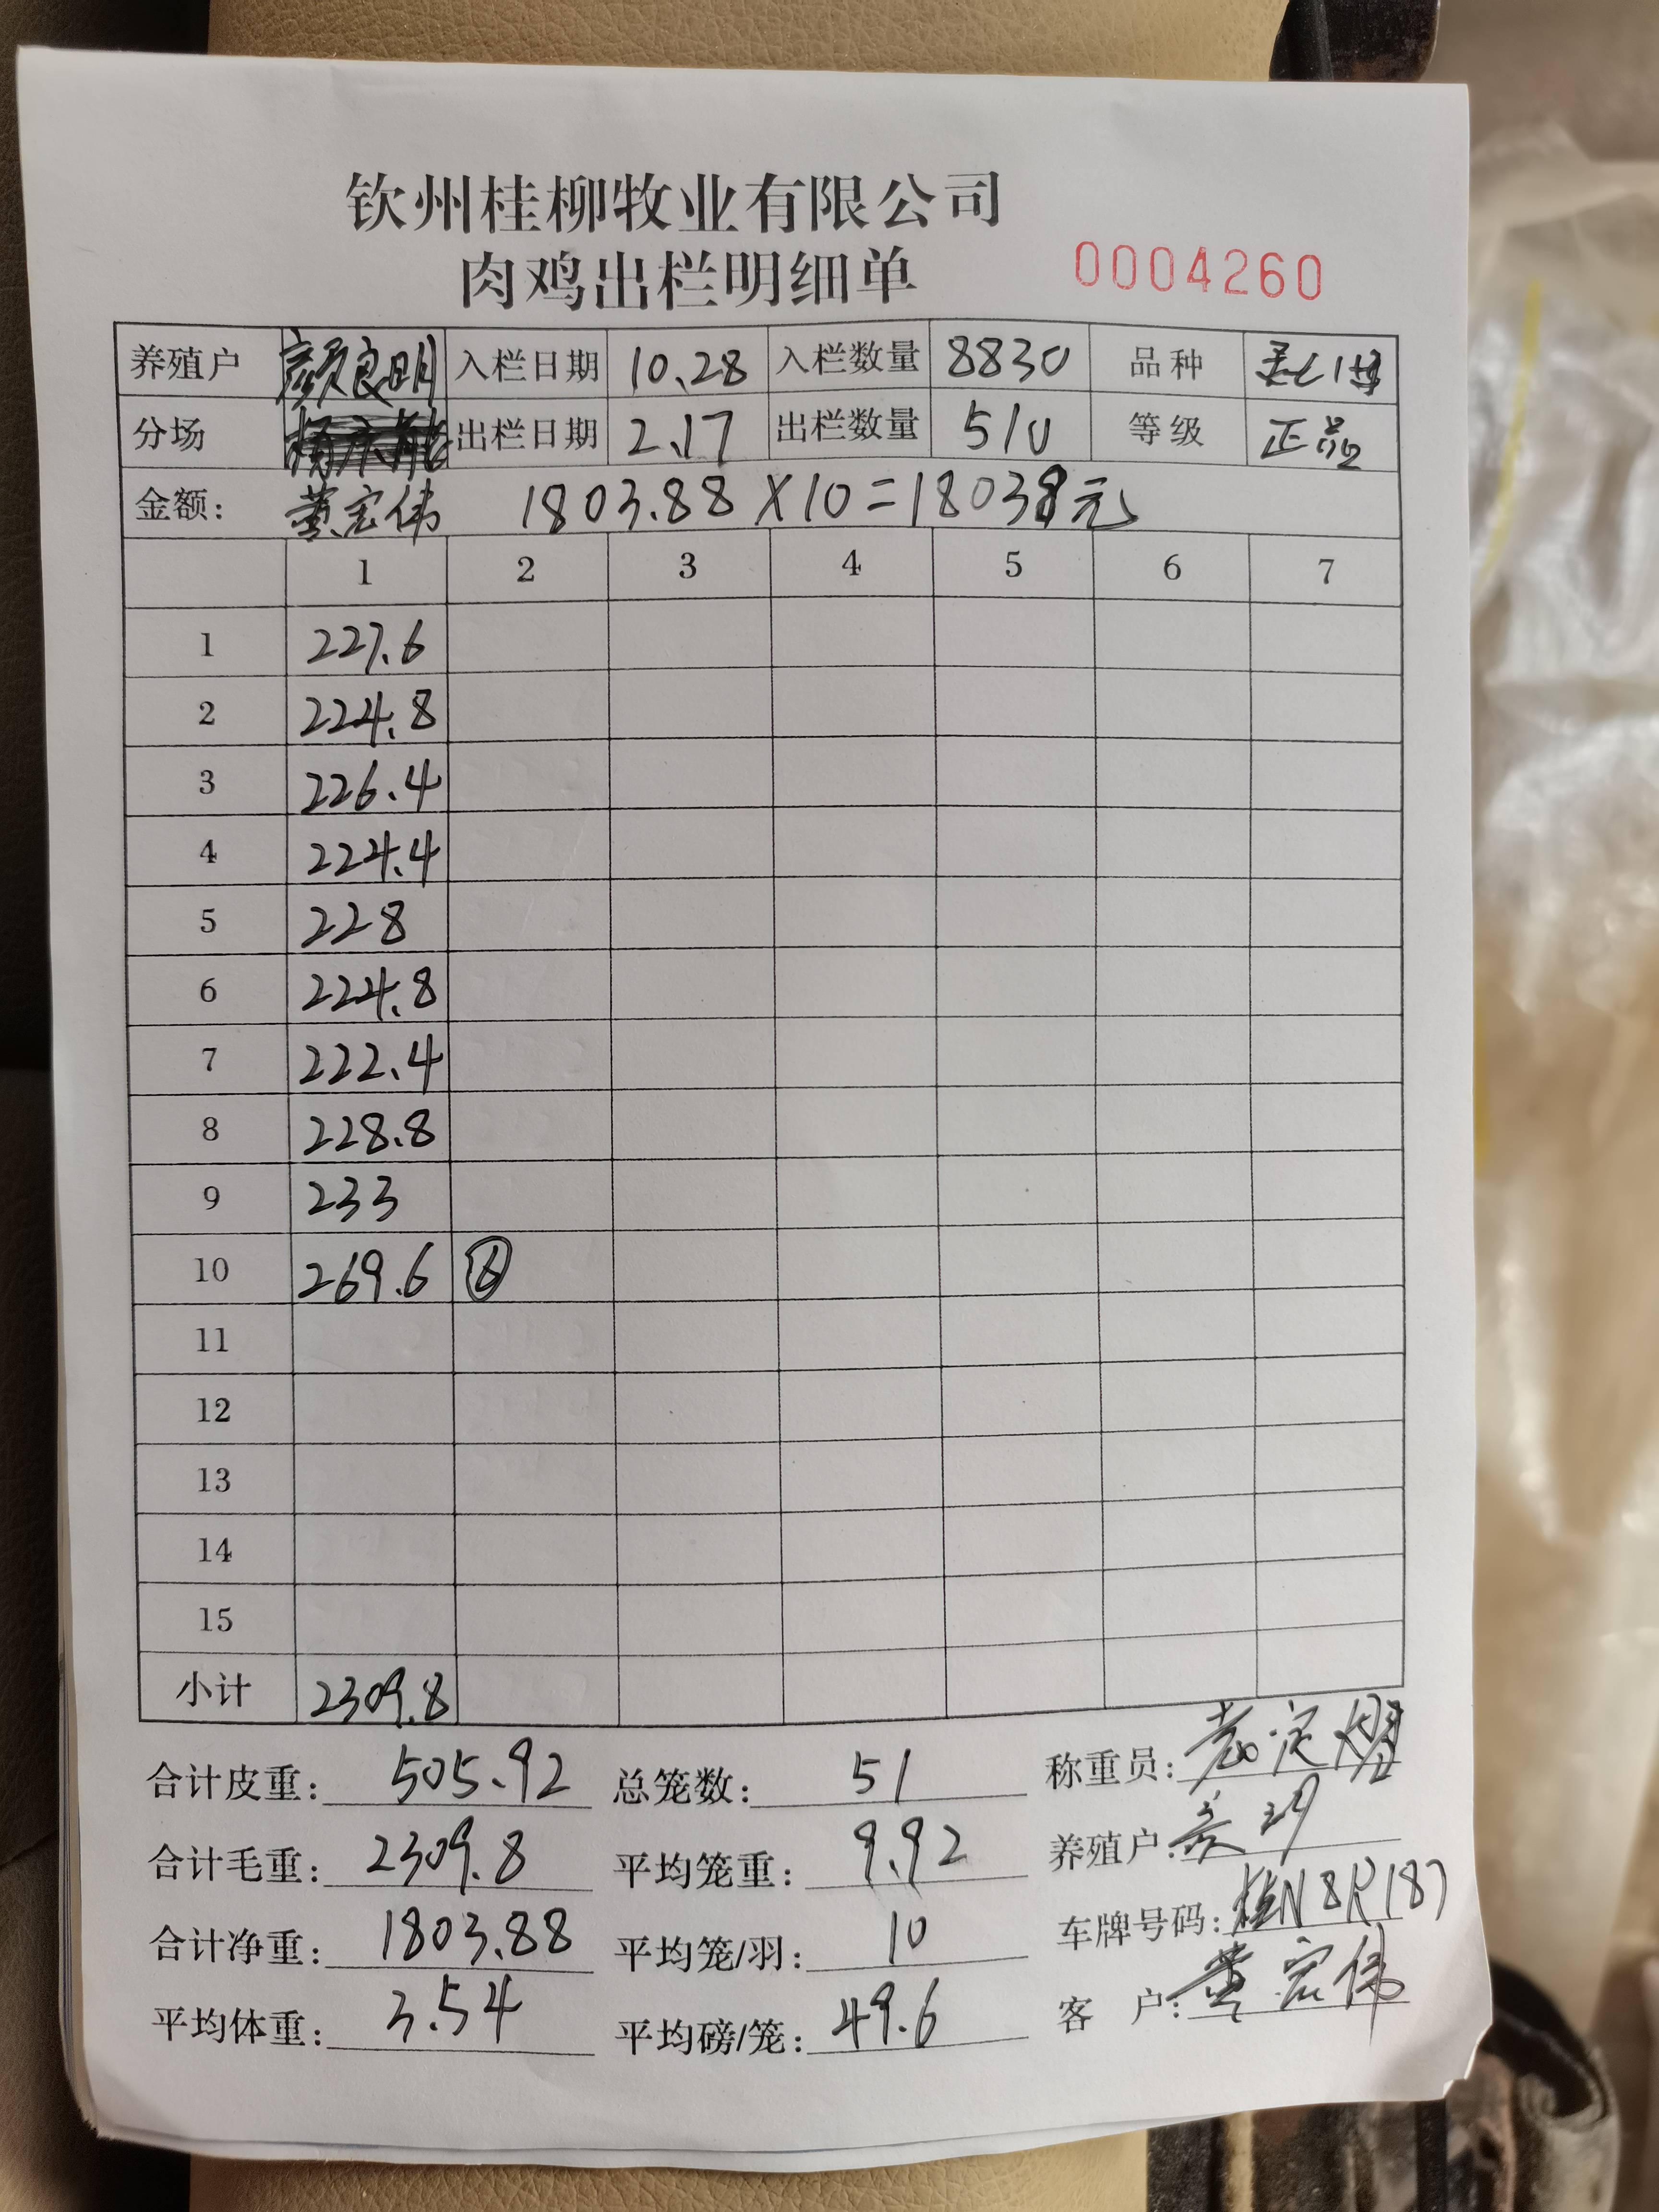 钦州桂柳牧业有限公司
肉鸡出栏明细单 0004260
养殖户 颜良明 入栏日期 10.28 入栏数量 8830 品种
分场 出栏日期 2.17 出栏数量 510 等级 正品
金额: 黄宏伟 1803.88×10=18038元
1 2 3 4 5 6 7
1 227.6
2 224.8
3 226.4
4 224.4
5 228
6 224.8
7 222.4
8 228.8
9 233
10 269.6 ⑥
11
12
13
14
15
小计 2309.8
合计皮重: 505.92 总笼数: 51 称重员:
合计毛重: 2309.8 平均笼重: 9.92 养殖户:
合计净重: 1803.88 平均笼/羽: 10 车牌号码: 桂N8R187
平均体重: 3.54 平均磅/笼: 49.6 客 户: 黄宏伟